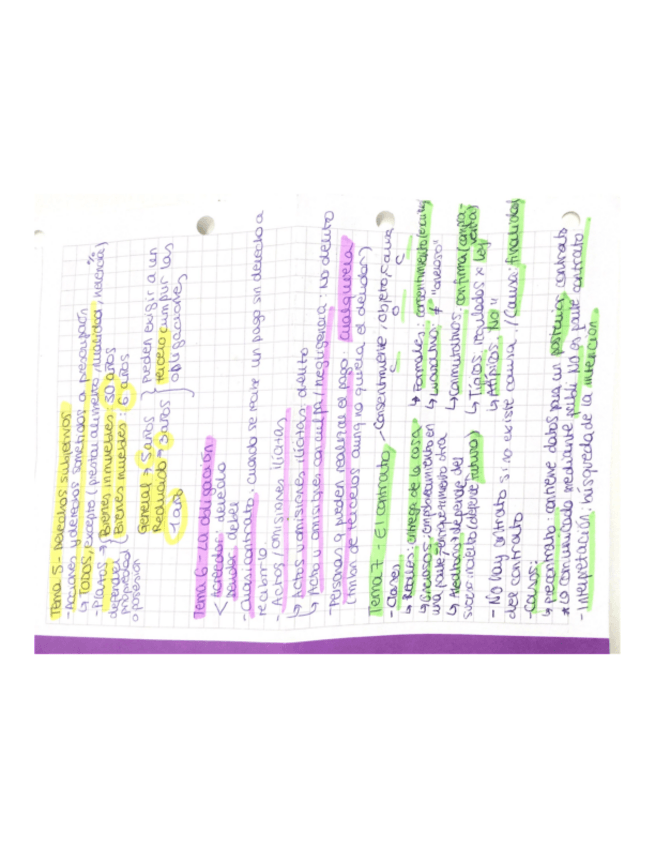 Tema 5 - Derechos subjetivos
- Acciones y derechos sometidos a prescripción
↳ TODOS, excepto (prestar alimento, nulidad, herencia)
- Plazos → Bienes inmuebles: 30 años
depende propiedad o posesión { Bienes muebles: 6 años
General → 5 años } Pueden exigir a un
Reducido → 3 años } tercero cumplir las
1 año } obligaciones
Tema 6 - La obligación
< Acreedor: derecho
Deudor: deber
- Cuasicontrato: cuando se recibe un pago sin derecho a
recibirlo
- Actos / omisiones ilícitas
↳ Actos u omisiones ilícitas: delito
↳ Acto u omisiones con culpa / negligencia: no delito
- Personas q pueden realizar el pago: cualquiera
(... de terceros aunq no quiera el deudor)
Tema 7 - El contrato
- Consentimiento, objeto, causa
C O C
- Clases
↳ Reales: entrega de la cosa
↳ Onerosos: empobrecimiento en
una parte, enriquecimiento otra
↳ Aleatorio: depende del
suceso incierto (depende futuro)
↳ Formales: consentimiento
↳ Lucrativo: ≠ "oneroso"
↳ Conmutativos: confirma (compra-
venta)
↳ Típicos: regulados x ley
↳ Atípicos: "NO"
- No hay contrato si no existe causa. / Causa: finalidad
del contrato
- Causas:
↳ precontrato: contiene datos para un posterior contrato
* Lo comunicado mediante publi NO es parte contrato
- Interpretación: búsqueda de la intención